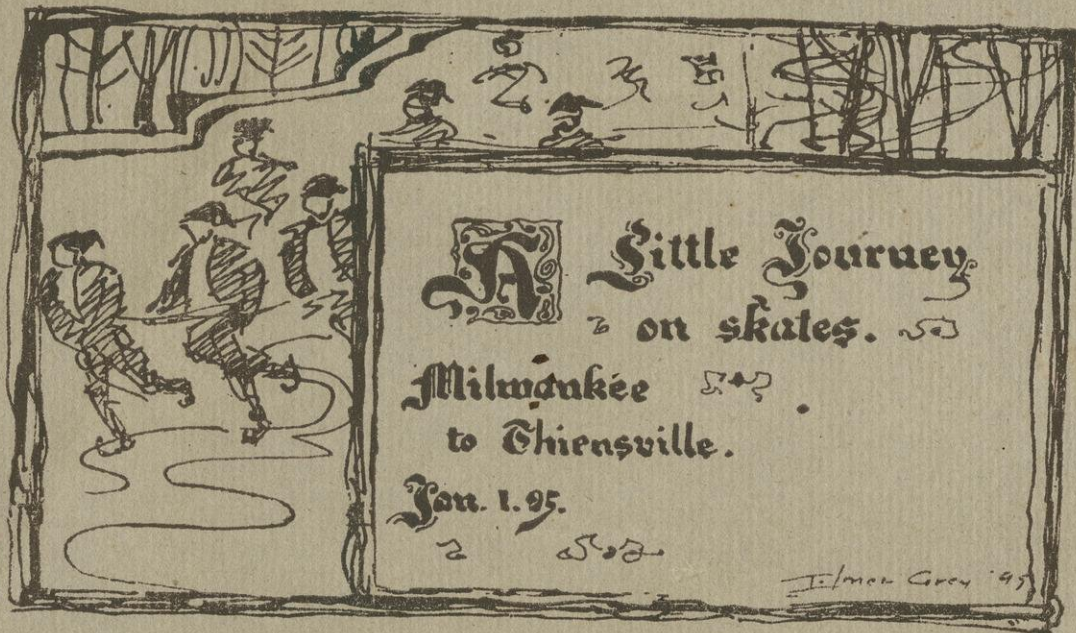 A Little Journey
on skates.
Milwaukee
to Thiensville.
Jan. 1. 95.
Elmer Grey '95